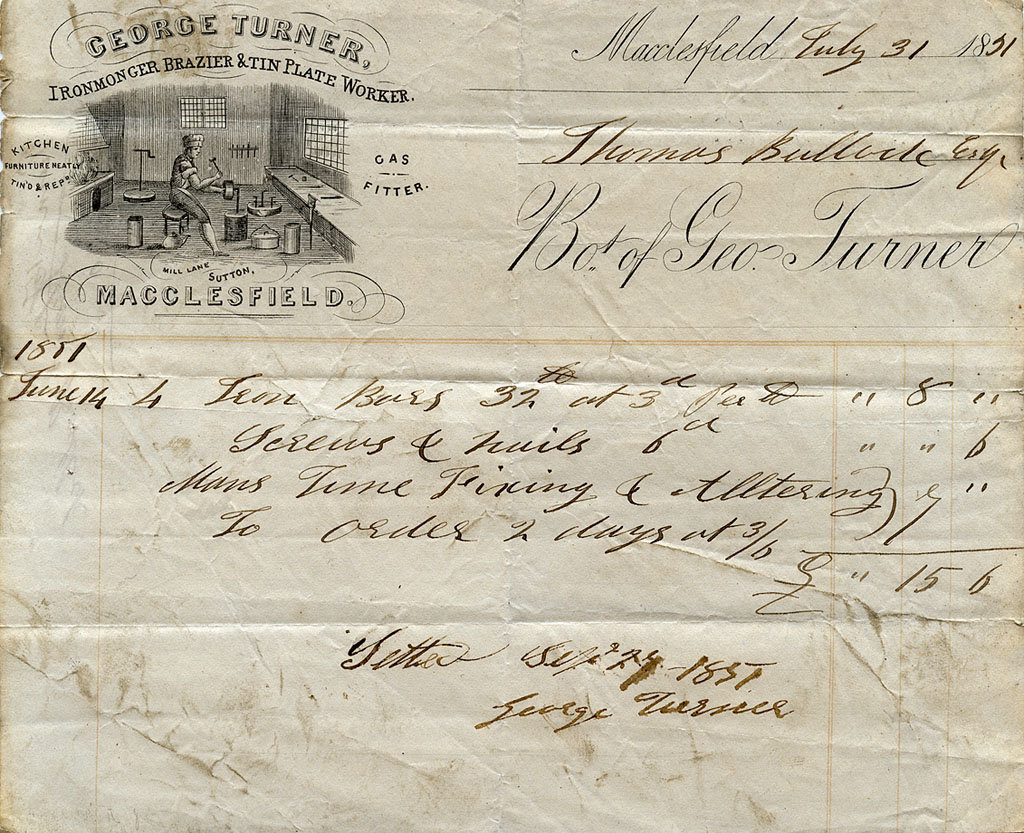 GEORGE TURNER,
IRONMONGER BRAZIER & TIN PLATE WORKER.
KITCHEN
FURNITURE NEATLY
TIN'D & REPD
GAS
FITTER.
MILL LANE SUTTON,
MACCLESFIELD.
Macclesfield July 31 1851
Thomas Bullock Esqr
Bot. of Geo. Turner
1851
June 14 4 Iron Bars 32 lb at 3d Per lb " 8 "
Screws & nails 6d " " 6
Mans Time Fixing & Alltering
To order 2 days at 3/6 } 7 "
£ " 15 6
Settled Sep 1851
George Turner